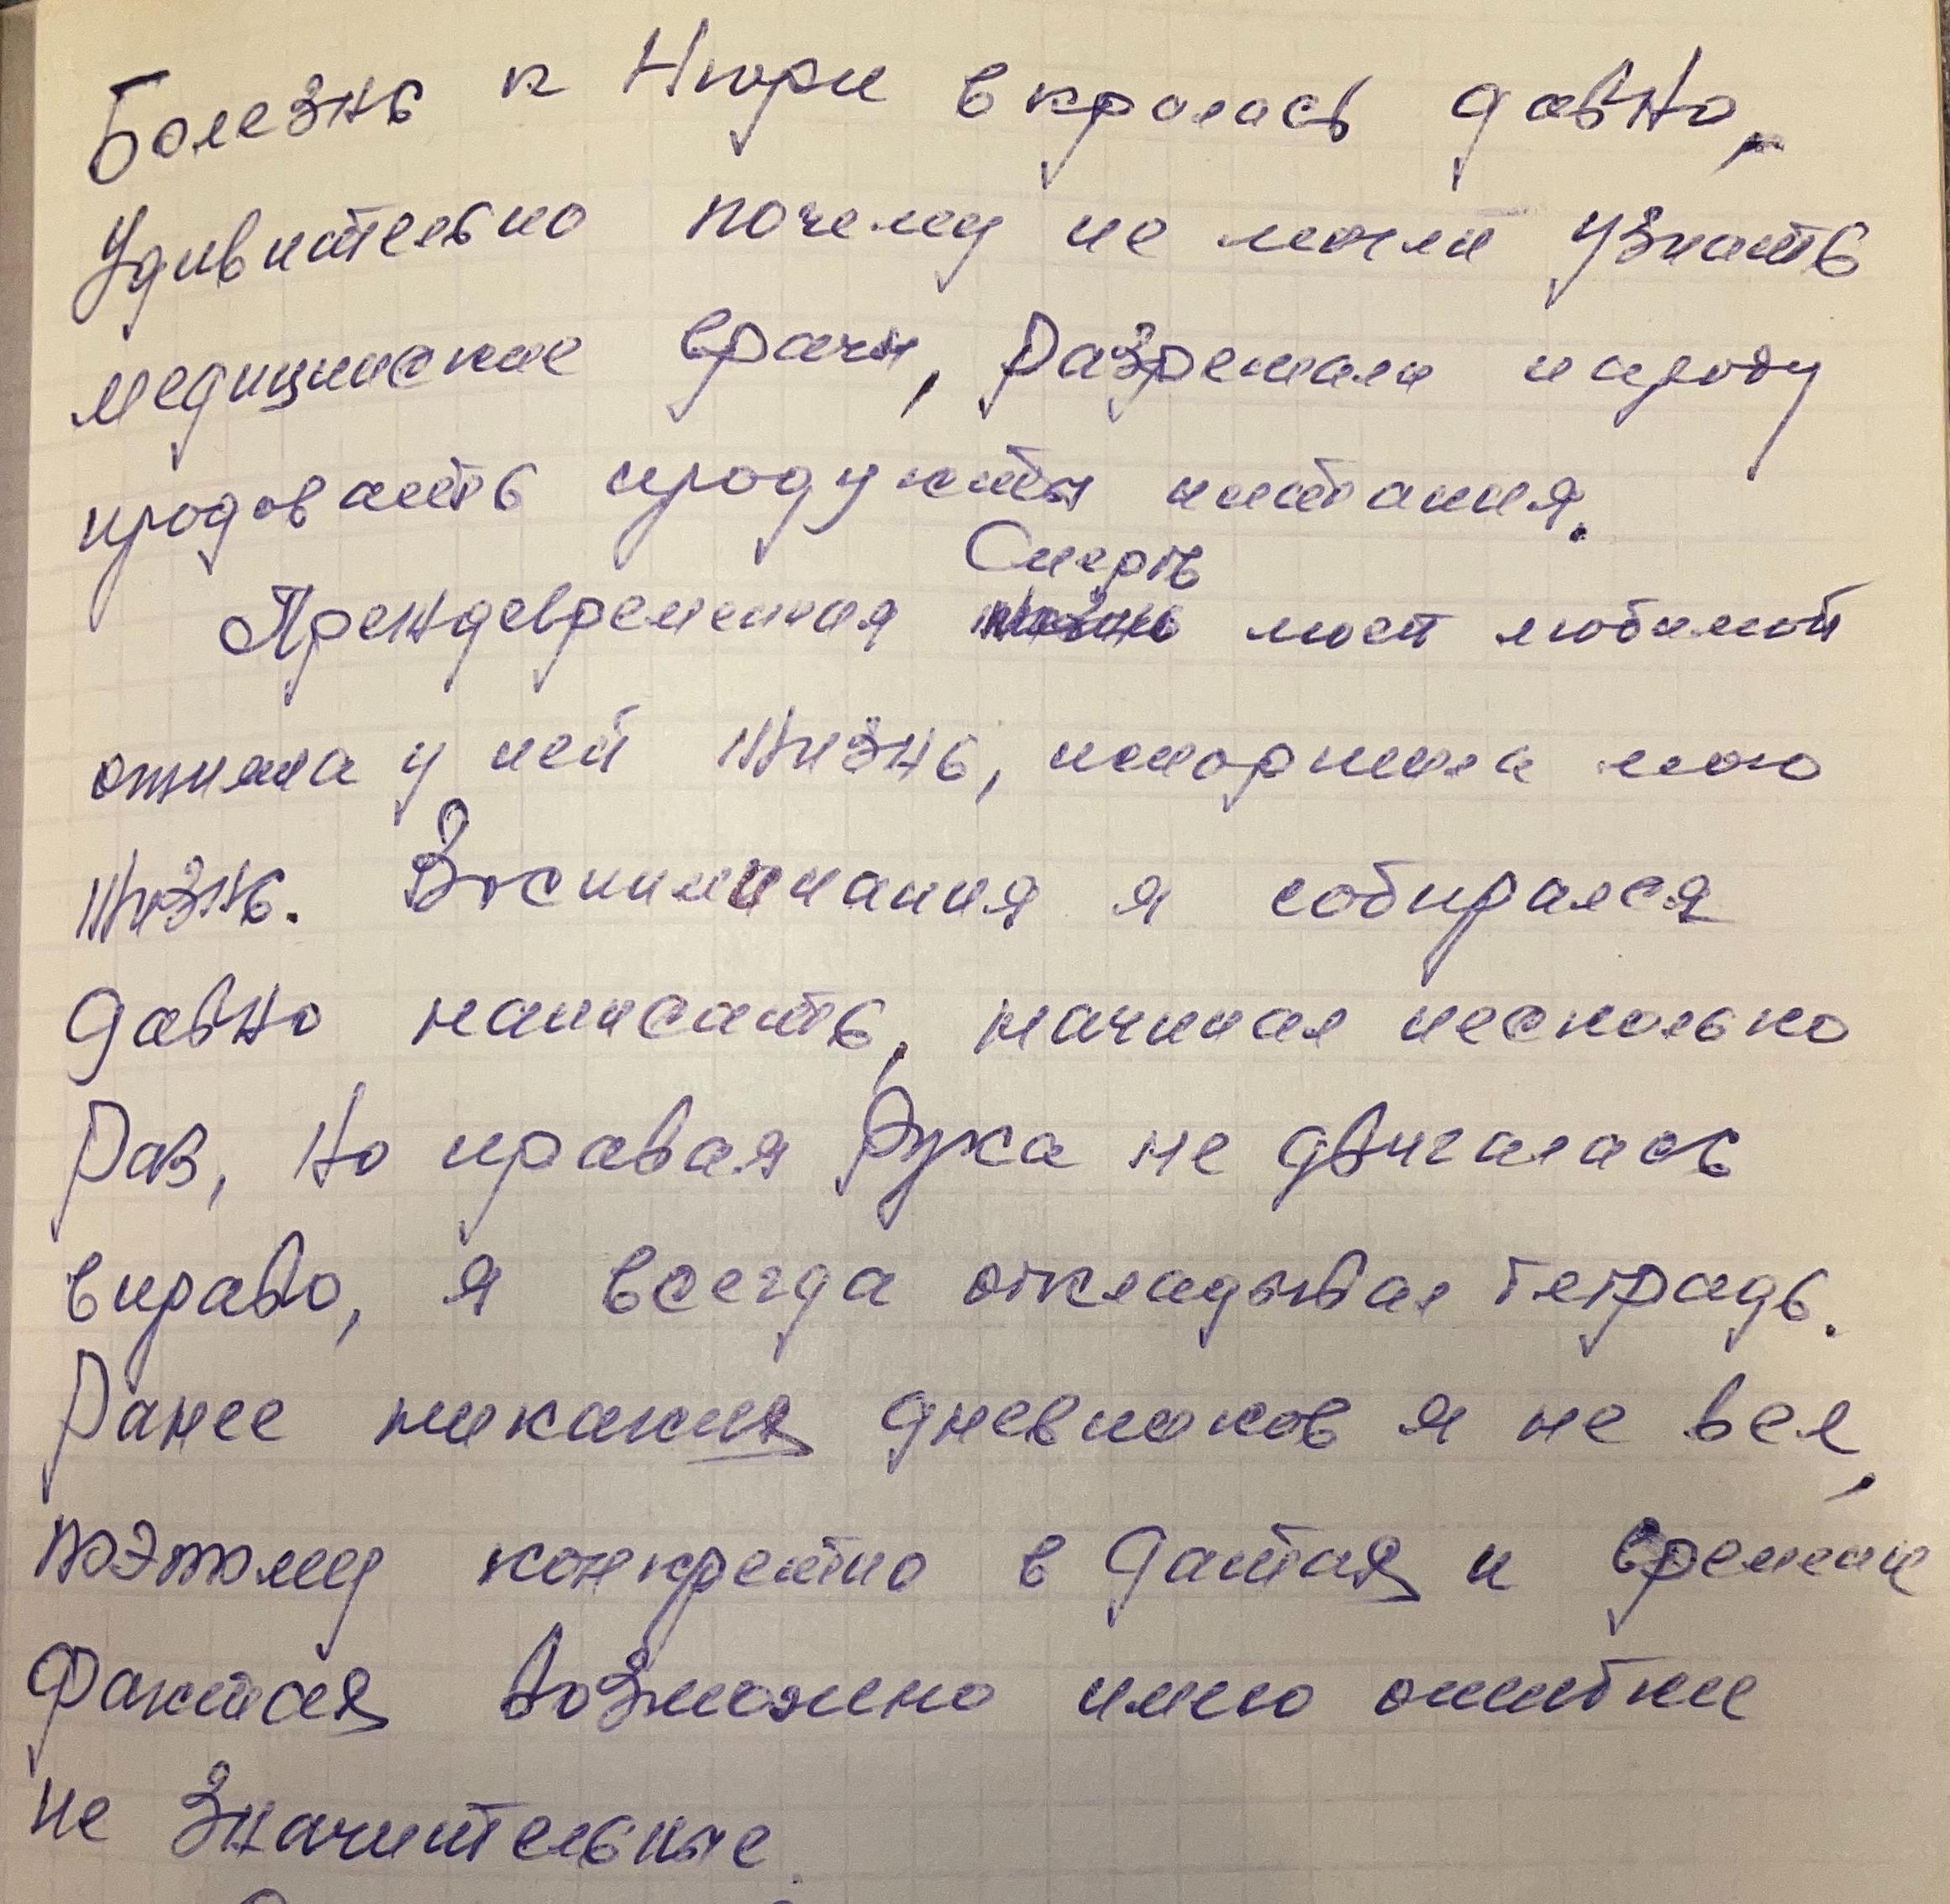 Болезнь к Нюре вкралась давно,
Удивительно почему не могли узнать
медицинские врачи, Разрешали народу
продовать продукты питания.
Смерть
Преждевременная жизнь моей любимой
отняла у ней жизнь, испортила мою
жизнь. Воспиминания я собирался
давно написать, начинал несколько
Раз, но правая Рука не двигалась
вправо, я всегда откладывал тетрадь.
Ранее никаких дневников я не вел,
поэтому конкретно в датах и времени
фактах возможно имею ошибки
не значительные.